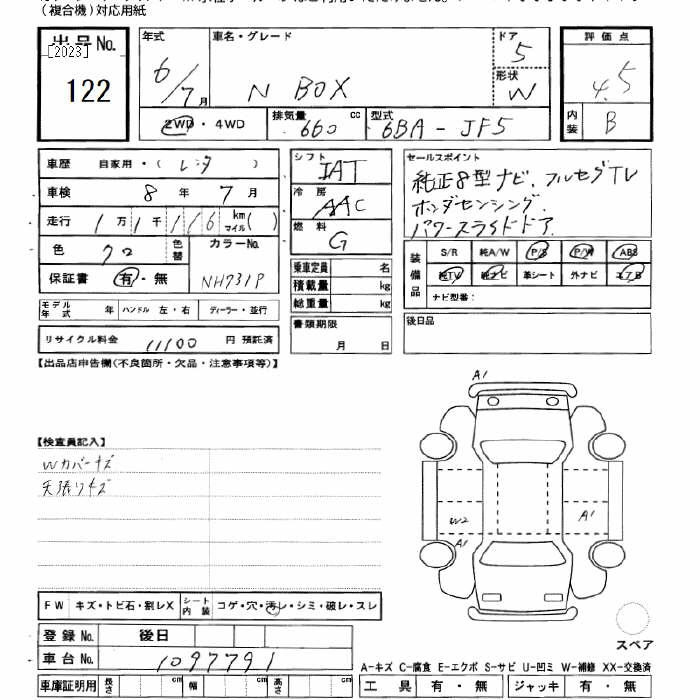 (複合機)対応用紙
出品No. 年式 車名・グレード ドア 評価点
[2023] 6/7月 N BOX 5 4.5
122 形状 W
2WD・4WD 排気量 660 cc 型式 6BA-JF5 内装 B
車歴 自家用・( レンタ ) シフト IAT セールスポイント
車検 8年 7月 冷房 AAC 純正8型ナビ.フルセグTV
走行 1万1千116 km マイル( ) 燃料 G ホンダセンシング.
パワースライドドア.
色 クロ 色替 カラーNo. NH731P
保証書 有・無 乗車定員 名 装備品 S/R 純A/W P/S P/W ABS
積載量 kg 純TV 純ナビ 革シート 外ナビ エアB
総重量 kg ナビ型番:
モデル年式 年 ハンドル 左・右 ディーラー・並行 書類期限 月 日 後日品
リサイクル料金 11100 円 預託済
【出品店申告欄(不良箇所・欠品・注意事項等)】
A1
【検査員記入】
Wカバーキズ
天張りキズ
W2 A1
A1
FW キズ・トビ石・割レX シート内装 コゲ・穴・汚レ・シミ・破レ・スレ
登録No. 後日
スペア
車台No. 1097791
A-キズ C-腐食 E-エクボ S-サビ U-凹ミ W-補修 XX-交換済
車庫証明用 長さ cm 幅 cm 高さ cm 工具 有・無 ジャッキ 有・無